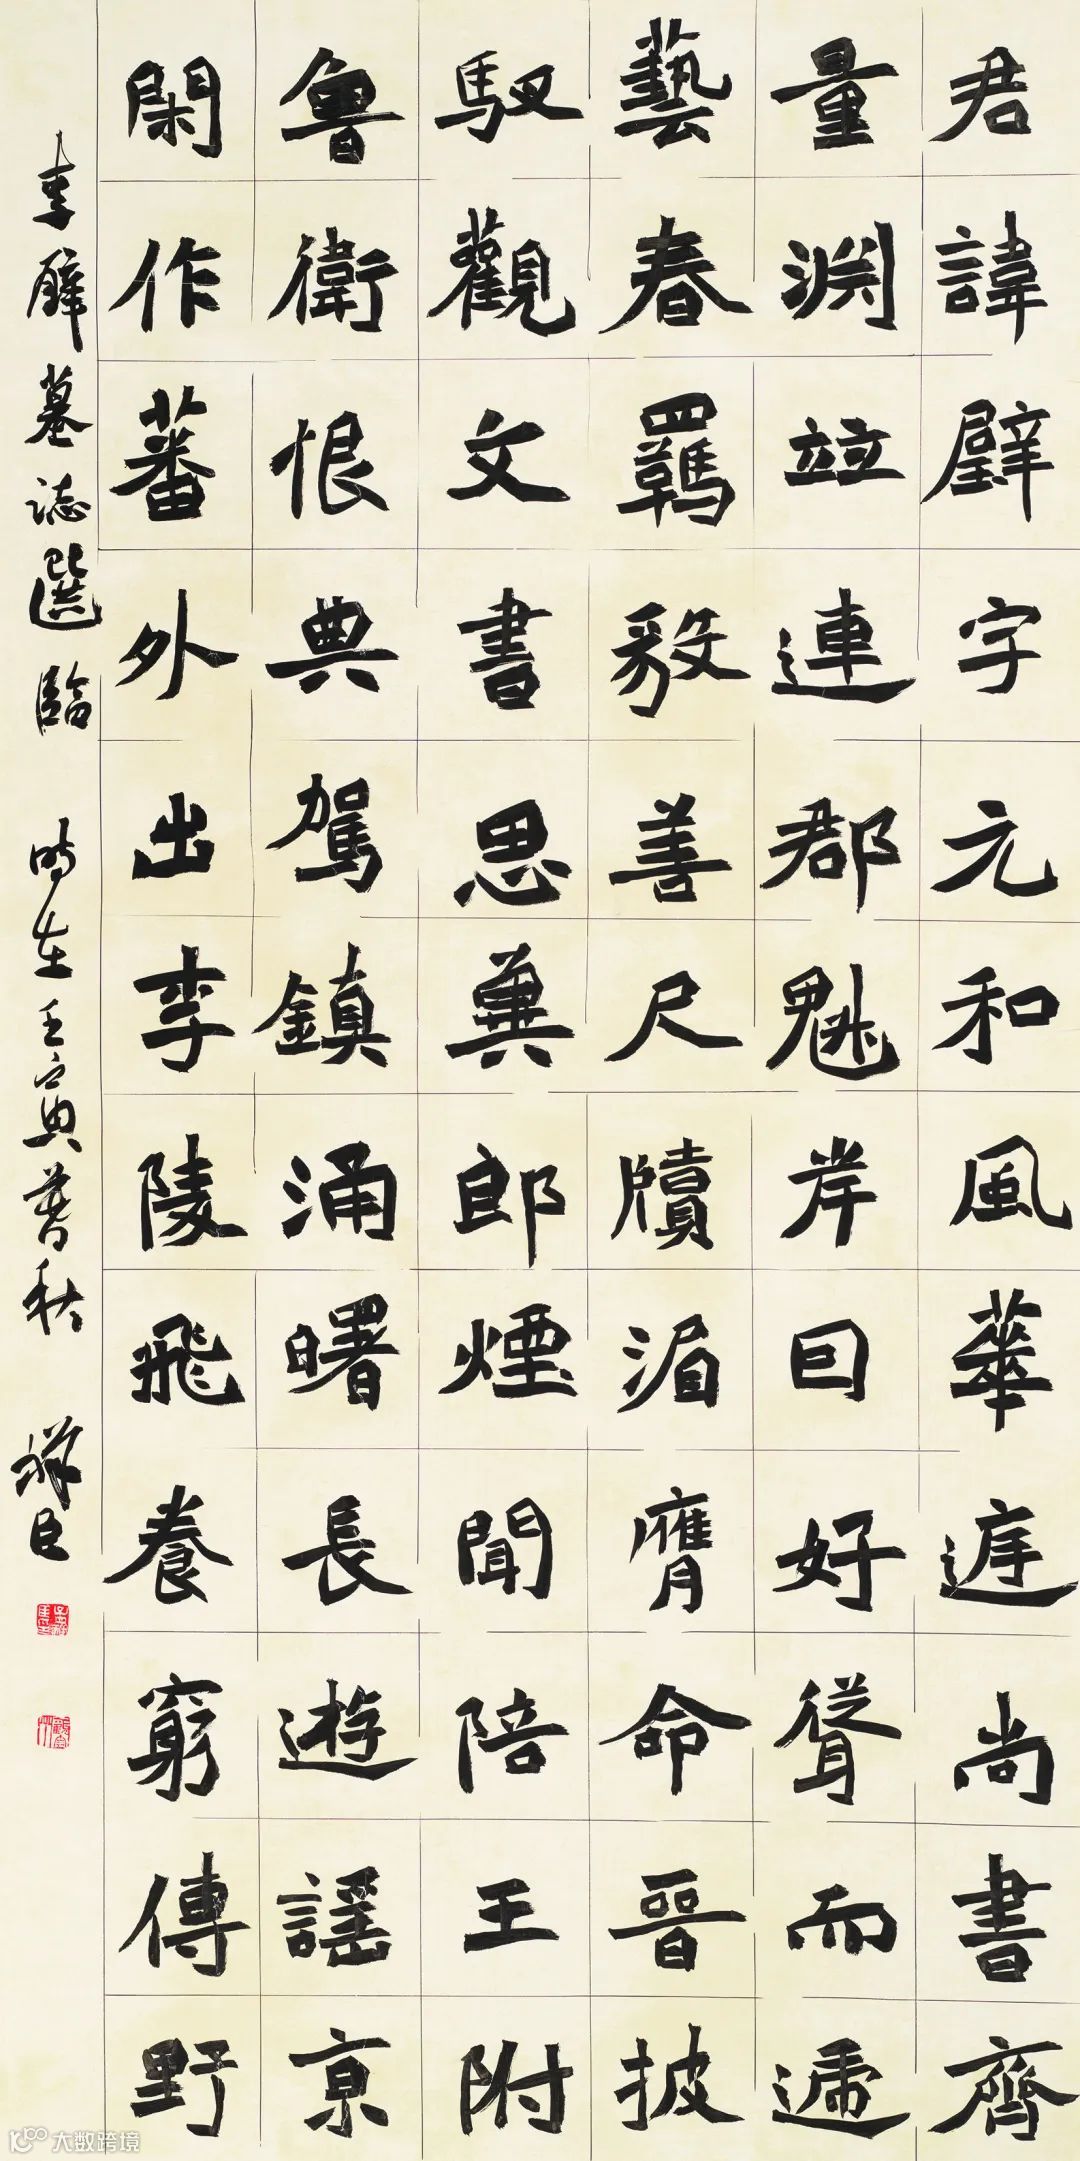 君諱璧字元和風華尚書齊
量淵竝連郡魁岸囙好聳而遞
藝春羇善尺牘湄膺命晉披
馭觀文書思兼郎煙聞陪王附
魯衛恨典駕鎮涌曙長遊謡京
閑作蕃外出李陵飛養窮傳野
李璧墓誌選臨 時在壬寅暮秋 祥臣
大数跨境